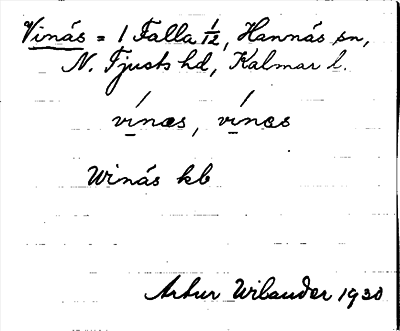 Vinås = 1 Falla 1/12, Hannäs sn,
N. Tjusts hd, Kalmar l.
vínæs, vínæs
Winås kb
Artur Wilander 1930